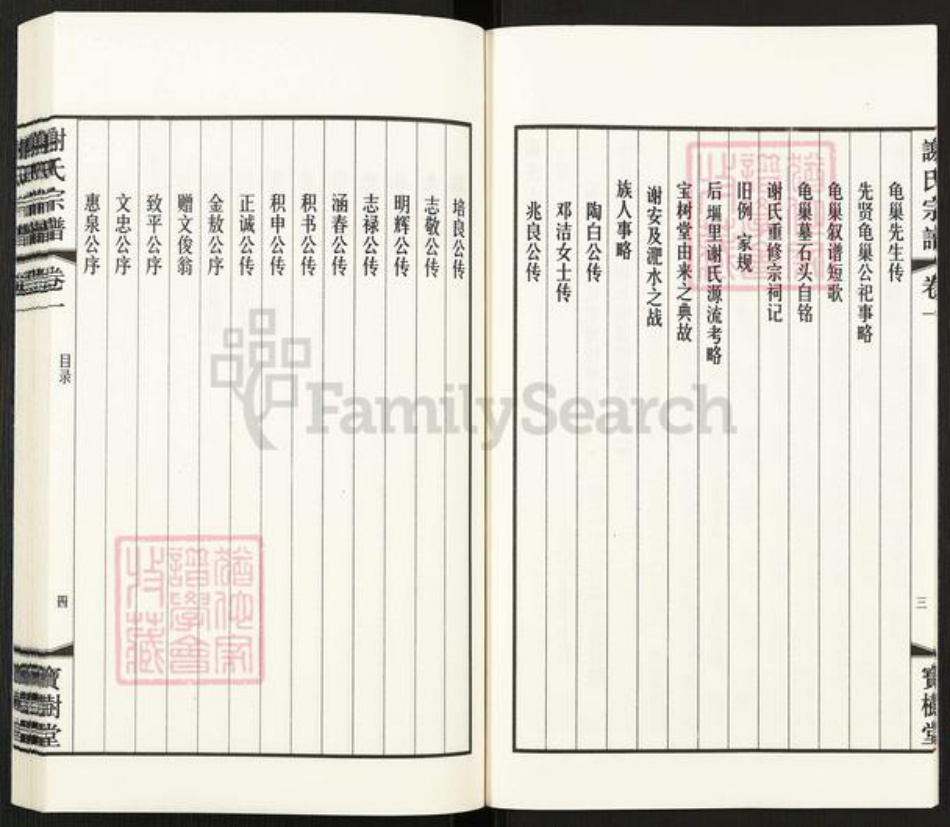 謝氏宗譜 卷一
三
寶樹堂
龟巢先生传
先贤龟巢公祀事略
龟巢叙谱短歌
龟巢墓石头自铭
谢氏重修宗祠记
旧例 家规
后堰里谢氏源流考略
宝树堂由来之典故
谢安及淝水之战
族人事略
陶白公传
邓洁女士传
兆良公传
培良公传
志敬公传
明辉公传
志禄公传
涵春公传
积书公传
积申公传
正诚公传
金敖公序
赠文俊翁
致平公序
文忠公序
惠泉公序
謝氏宗譜 卷一
目录
四
寶樹堂
FamilySearch